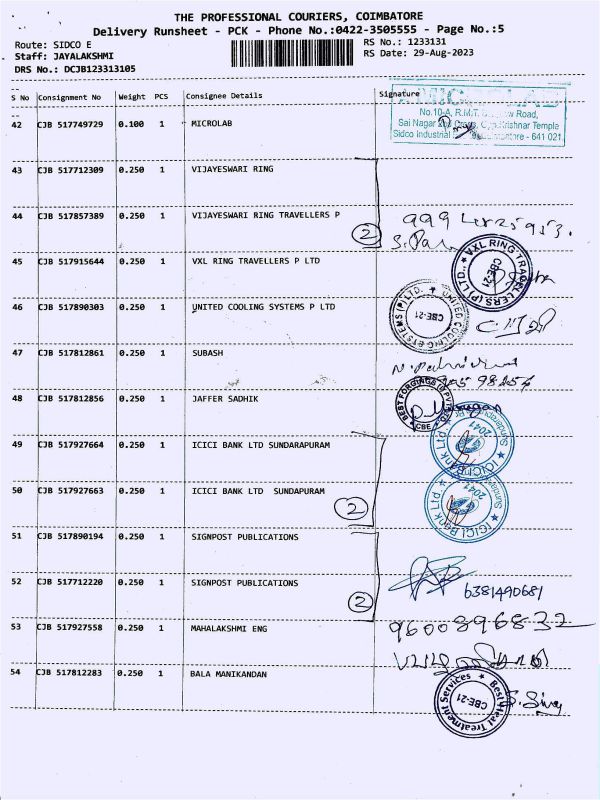 THE PROFESSIONAL COURIERS, COIMBATORE
Delivery Runsheet - PCK - Phone No.:0422-3505555 - Page No.:5
Route: SIDCO E
RS No.: 1233131
Staff: JAYALAKSHMI
RS Date: 29-Aug-2023
DRS No.: DCJB123313105
S No Consignment No Weight PCS Consignee Details Signature
No.10-A, R.M.T. Row Road,
42 CJB 517749729 0.100 1 MICROLAB
Sai Nagar Krishnar Temple
Sidco Industrial - 641 021.
43 CJB 517712309 0.250 1 VIJAYESWARI RING
44 CJB 517857389 0.250 1 VIJAYESWARI RING TRAVELLERS P
2
45 CJB 517915644 0.250 1 VXL RING TRAVELLERS P LTD
VXL RING TRAVELLERS (P) LTD.,
CBE-21
46 CJB 517890303 0.250 1 UNITED COOLING SYSTEMS P LTD
UNITED COOLING SYSTEMS (P) LTD.
CBE-21
47 CJB 517812861 0.250 1 SUBASH
48 CJB 517812856 0.250 1 JAFFER SADHIK
BEST FORGINGS (I) PVT LTD
CBE
49 CJB 517927664 0.250 1 ICICI BANK LTD SUNDARAPURAM
ICICI Bank Ltd
2041
50 CJB 517927663 0.250 1 ICICI BANK LTD SUNDAPURAM
2
ICICI Bank Ltd
2041
51 CJB 517890194 0.250 1 SIGNPOST PUBLICATIONS
52 CJB 517712220 0.250 1 SIGNPOST PUBLICATIONS
6381490681
2
53 CJB 517927558 0.250 1 MAHALAKSHMI ENG
9600896832
54 CJB 517812283 0.250 1 BALA MANIKANDAN
Best Heat Treatment Services
CBE-21
S. Siva